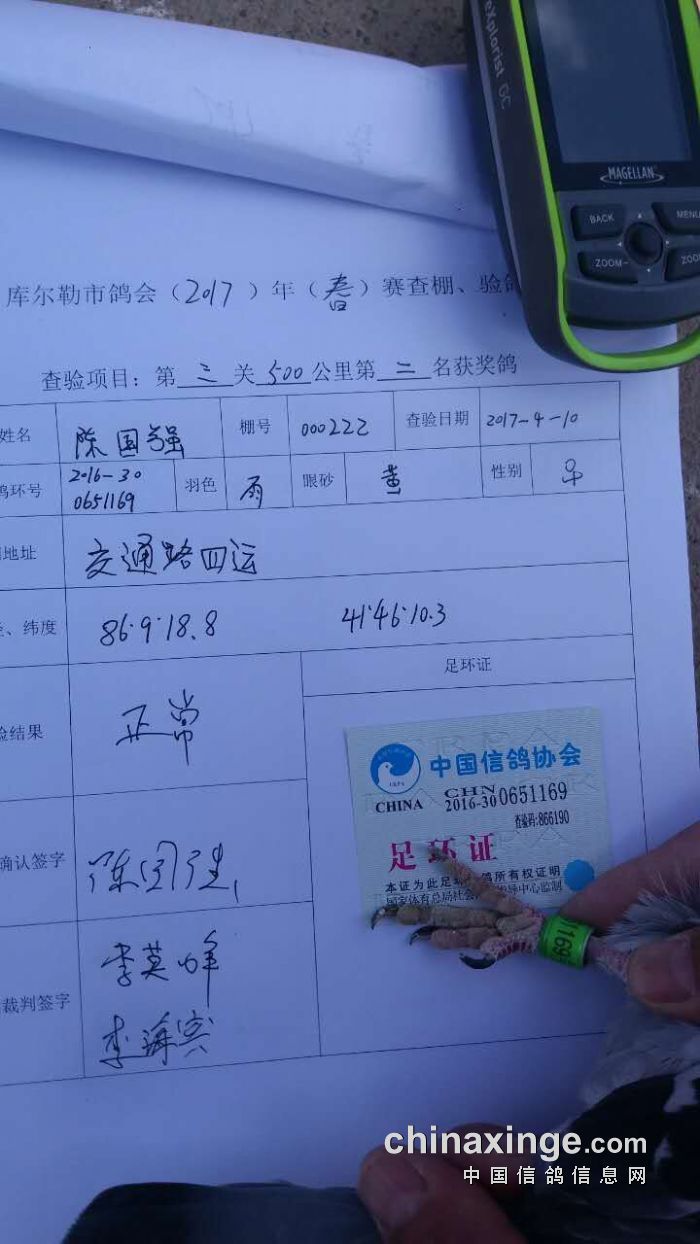 eXplorist GC
MAGELLAN
BACK
MENU
ZOOM-
库尔勒市鸽会（2017）年（春）赛查棚、验鸽
查验项目：第三关500公里第二名获奖鸽
姓名 陈国强 棚号 000222 查验日期 2017-4-10
鸽环号 2016-30 0651169 羽色 雨 眼砂 黄 性别 ♀
地址 交通路四运
、纬度 86·9·18.8 41·46·10.3
足环证
验结果 正常
中国信鸽协会
CHINA CHN 2016-30 0651169
查验码:866190
足环证
本证为此足环 鸽所有权证明
国家体育总局社会 指导中心监制
确认签字 陈国强
169
裁判签字 李英峰
李海宾
chinaxinge.com
中国信鸽信息网